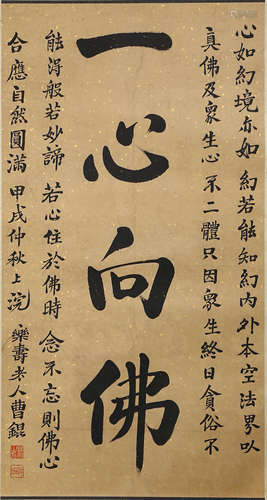 心如幻境亦如幻若能知幻内外本空法界以
真佛及衆生心不二體只因衆生終日貪俗不
一心向佛
能得般若妙諦若心住於佛時念不忘則佛心
合應自然圓滿甲戌仲秋上浣樂壽老人曹錕